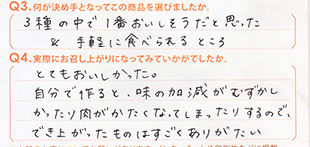 Q3.何が決め手となってこの商品を選びましたか。
3種の中で1番おいしそうだと思った
& 手軽に食べられるところ
Q4.実際にお召し上がりになってみていかがでしたか。
とてもおいしかった。
自分で作ると、味の加減がむずかし
かったり肉がかたくなってしまったりするので、
でき上がったものはすごくありがたい